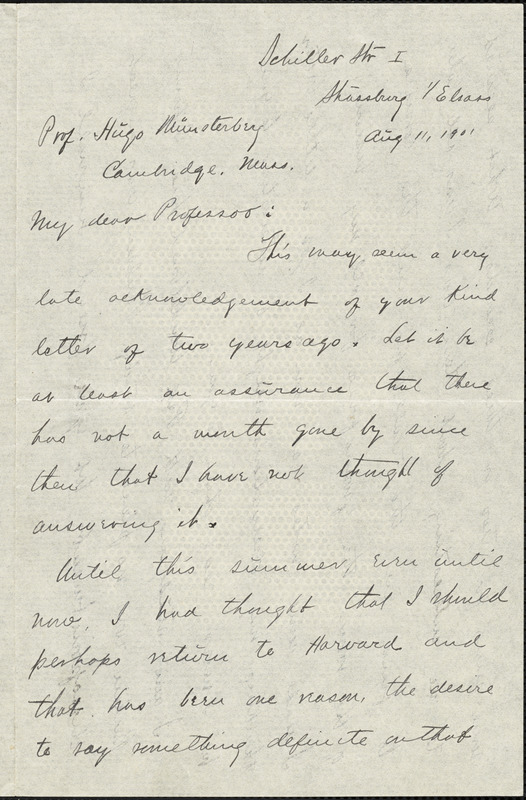 Schiller Str I
Strassburg i/Elsass
Prof. Hugo Münsterberg
Aug 11, 1901
Cambridge. Mass.
My dear Professor:
This may seem a very
late acknowledgement of your kind
letter of two years ago. Let it be
at least an assurance that there
has not a month gone by since
then that I have not thought of
answering it.
Until this summer, even until
now, I had thought that I should
perhaps return to Harvard and
that has been one reason, the desire
to say something definite on that